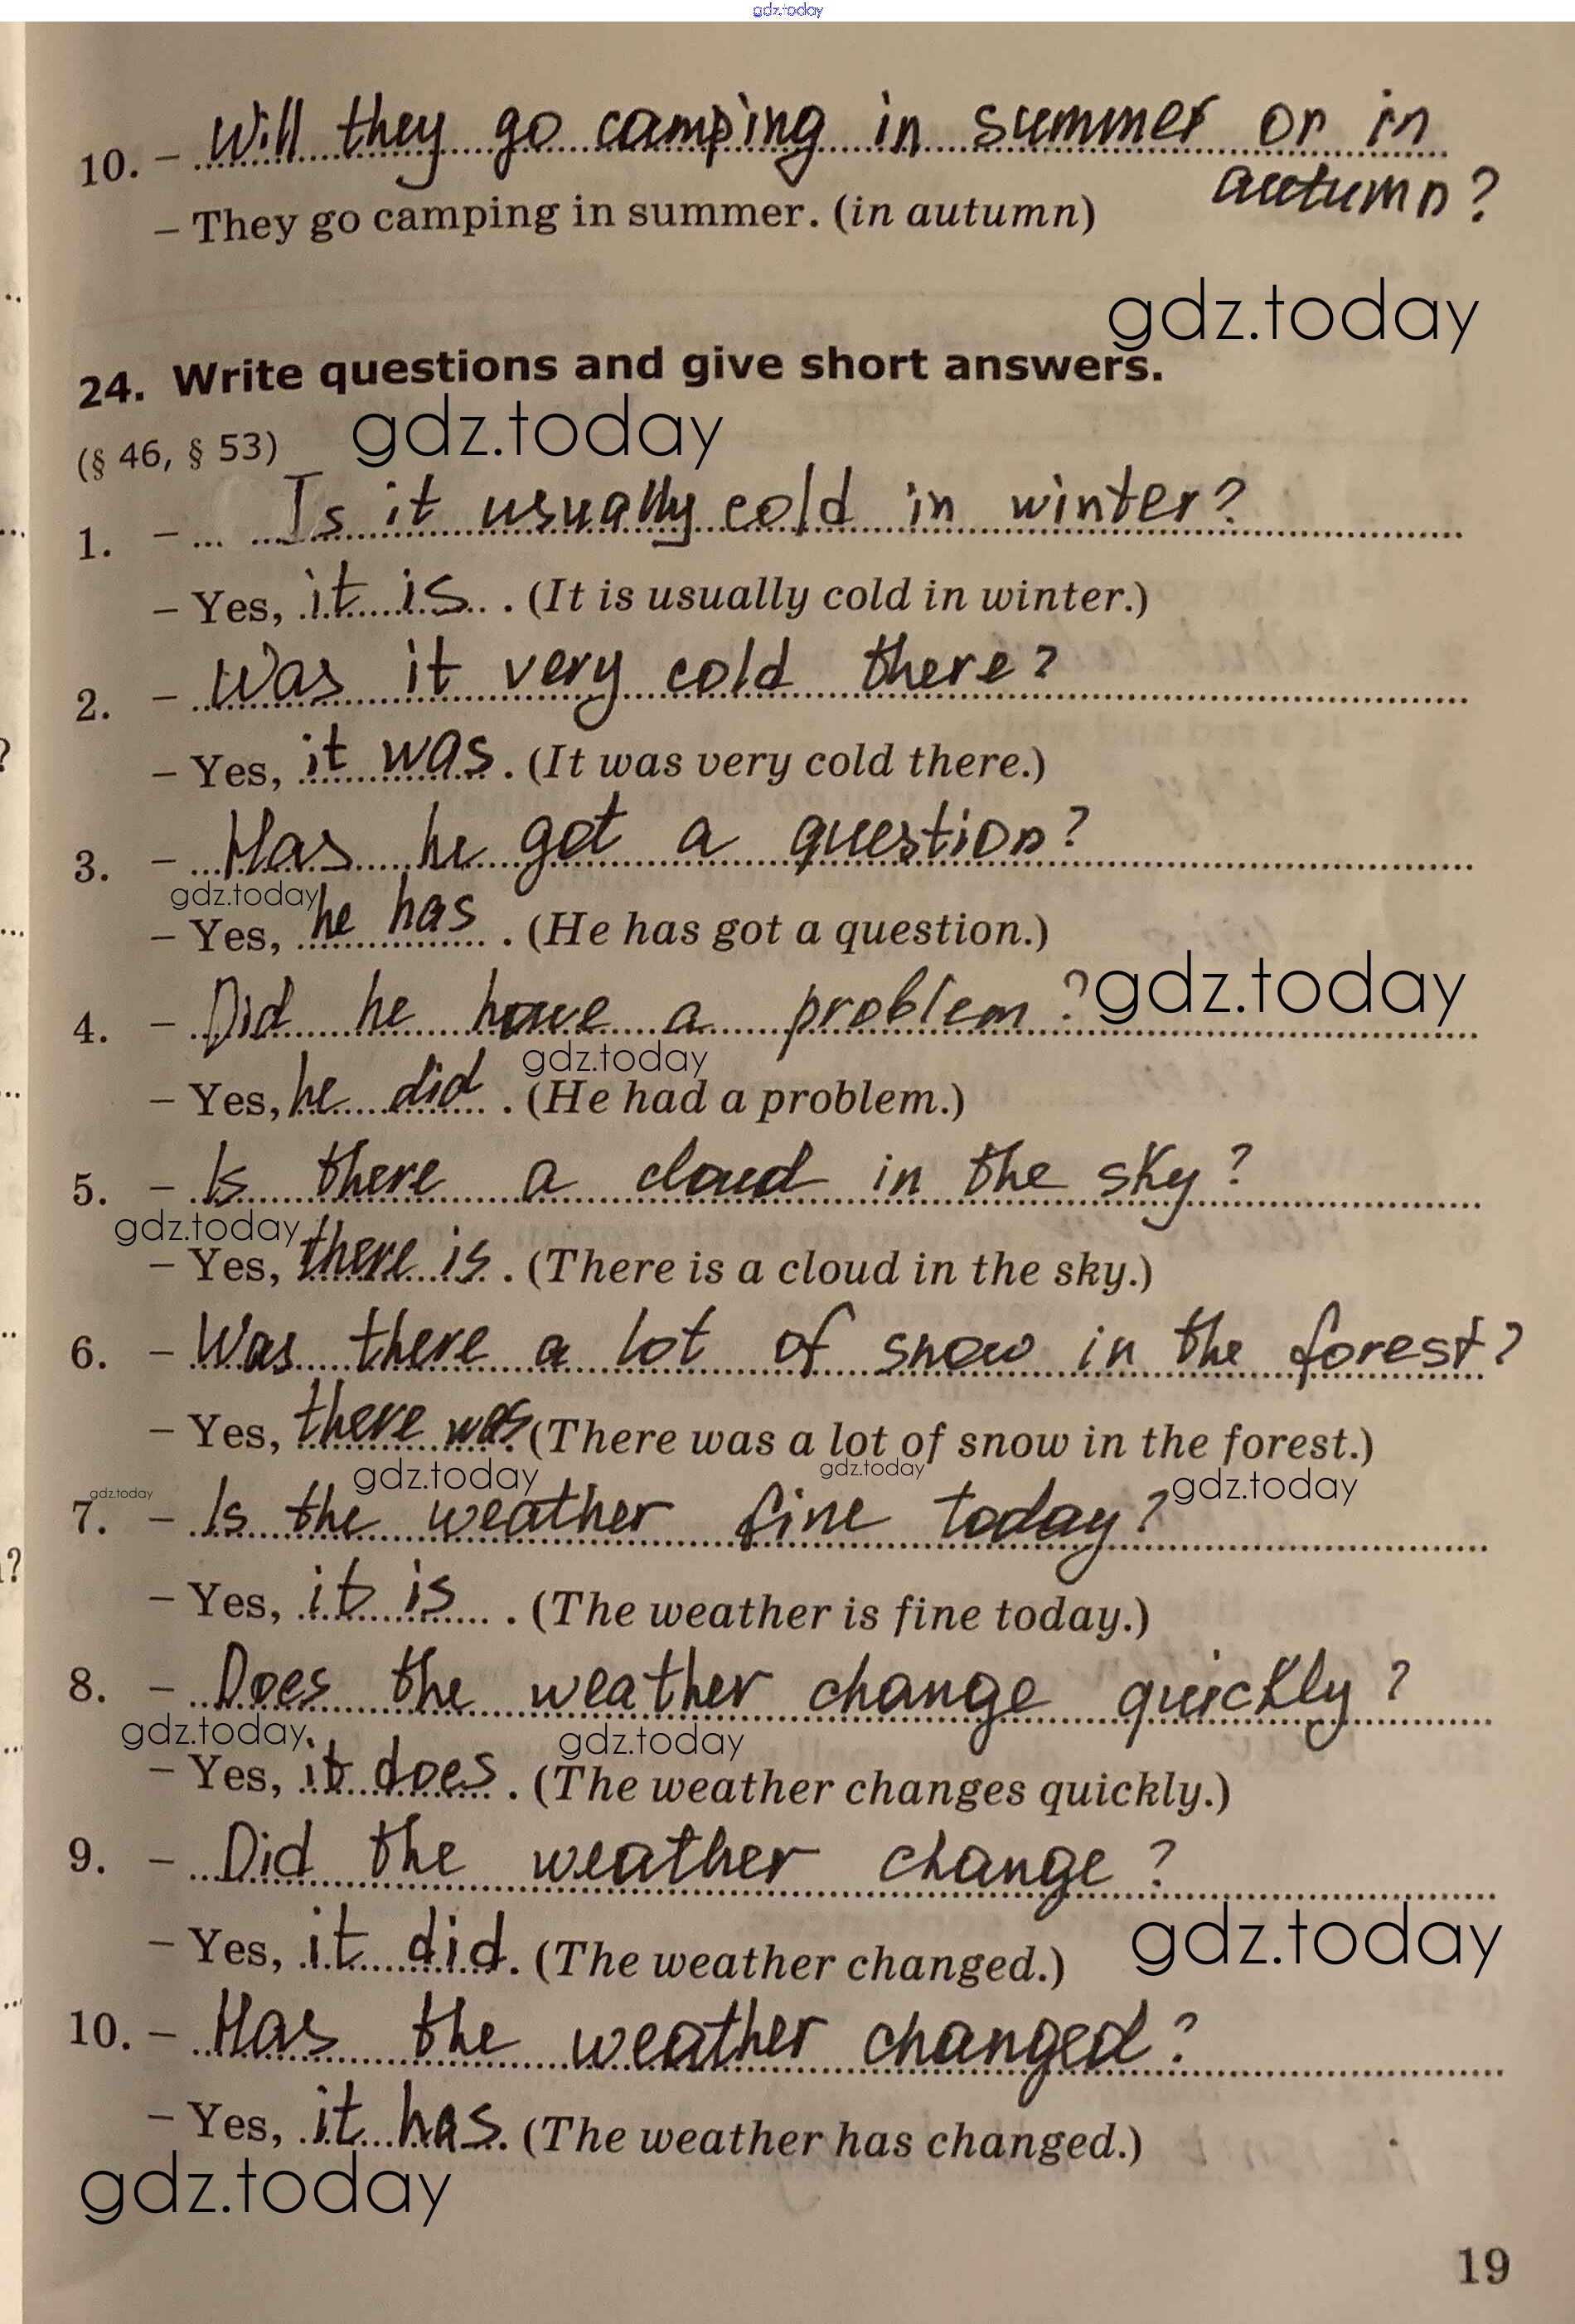 gdz.today
10. – Will they go camping in summer or in
autumn?
– They go camping in summer. (in autumn)
gdz.today
24. Write questions and give short answers.
(§ 46, § 53) gdz.today
1. – Is it usually cold in winter?
– Yes, it is. (It is usually cold in winter.)
2. – Was it very cold there?
– Yes, it was. (It was very cold there.)
3. – Has he got a question?
gdz.today
– Yes, he has. (He has got a question.)
4. – Did he have a problem? gdz.today
gdz.today
– Yes, he did. (He had a problem.)
5. – Is there a cloud in the sky?
gdz.today
– Yes, there is. (There is a cloud in the sky.)
6. – Was there a lot of snow in the forest?
– Yes, there was. (There was a lot of snow in the forest.)
gdz.today gdz.today gdz.today gdz.today
7. – Is the weather fine today?
– Yes, it is. (The weather is fine today.)
8. – Does the weather change quickly?
gdz.today gdz.today
– Yes, it does. (The weather changes quickly.)
9. – Did the weather change?
– Yes, it did. (The weather changed.) gdz.today
10. – Has the weather changed?
– Yes, it has. (The weather has changed.)
gdz.today
19